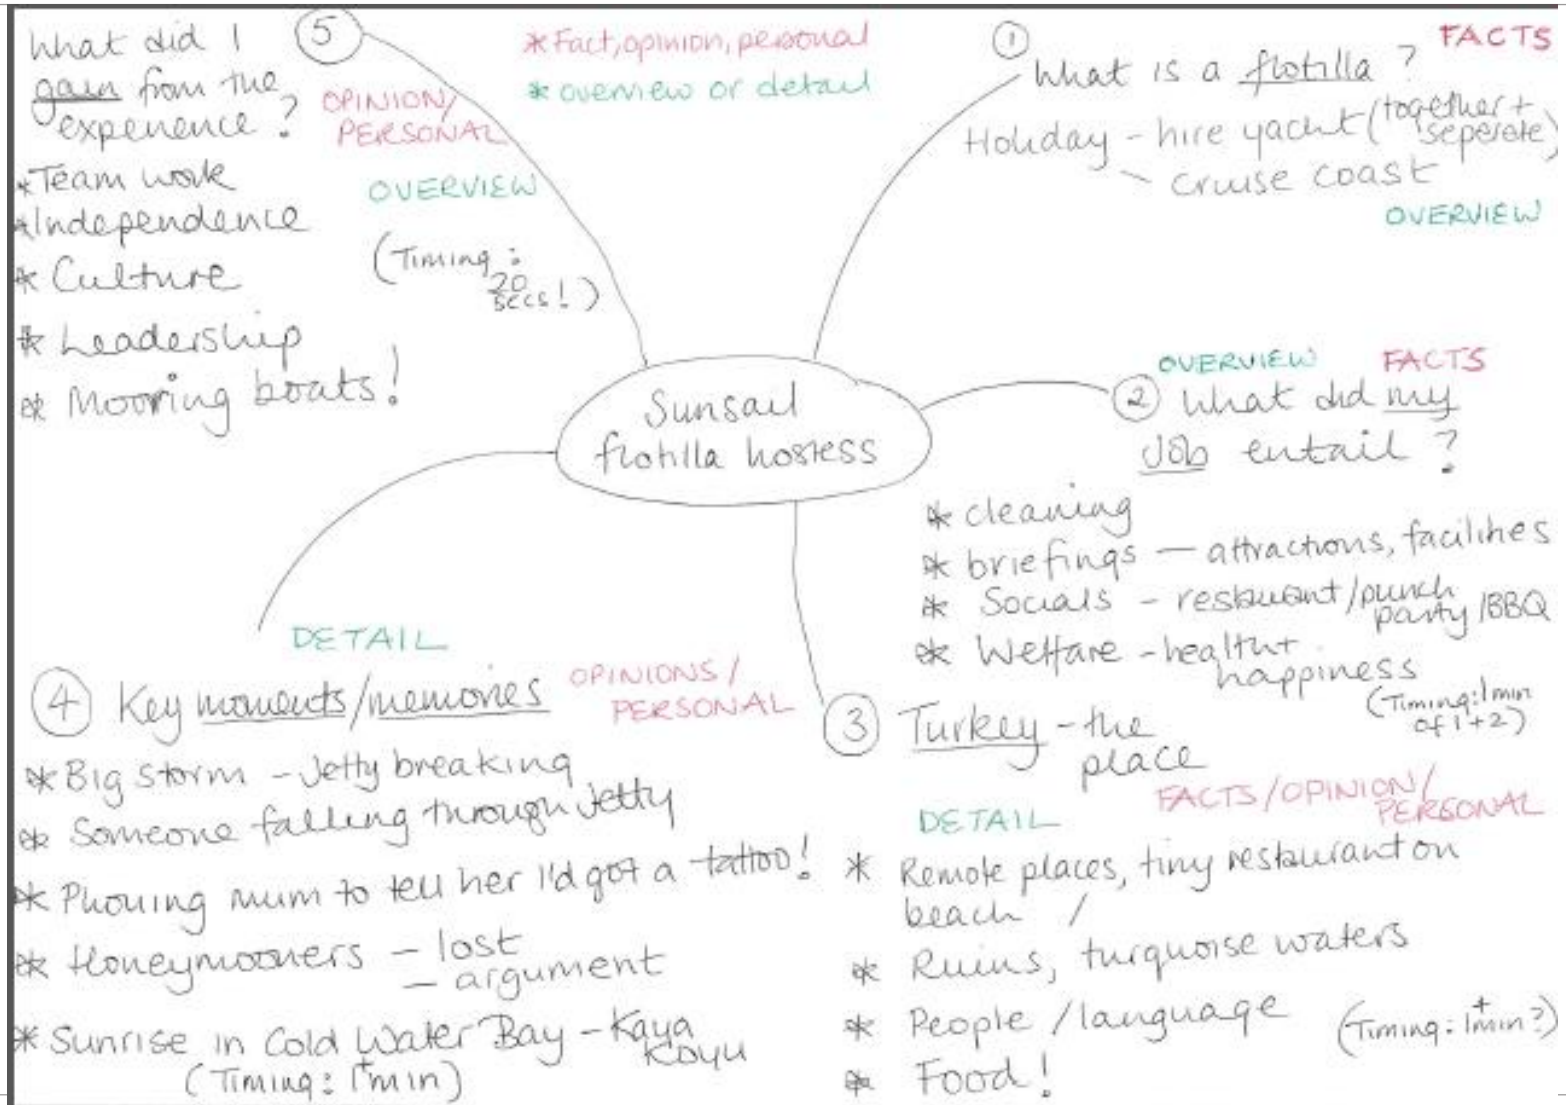 * Fact, opinion, personal
* overview or detail
Sunsail
flotilla hostess
① FACTS
What is a flotilla?
Holiday - hire yacht (together +
seperate)
- cruise coast
OVERVIEW
OVERVIEW FACTS
② What did my
Job entail?
* cleaning
* briefings — attractions, facilities
* Socials - restaurant/punch
party/BBQ
* Welfare - health +
happiness
(Timing: 1 min
of 1+2)
③ Turkey - the
place
DETAIL FACTS/OPINION/
PERSONAL
* Remote places, tiny restaurant on
beach /
* Ruins, turquoise waters
* People/language (Timing: 1+min?)
* Food!
DETAIL
④ Key moments/memories OPINIONS/
PERSONAL
* Big storm - Jetty breaking
* Someone falling through jetty
* Phoning mum to tell her I'd got a tattoo!
* Honeymooners - lost
- argument
* Sunrise in Cold Water Bay - Kaya
Koyu
(Timing: 1+min)
⑤ What did I
gain from the
experience?
OPINION/
PERSONAL
OVERVIEW
(Timing:
20
secs!)
* Team work
* Independence
* Culture
* Leadership
* Mooring boats!